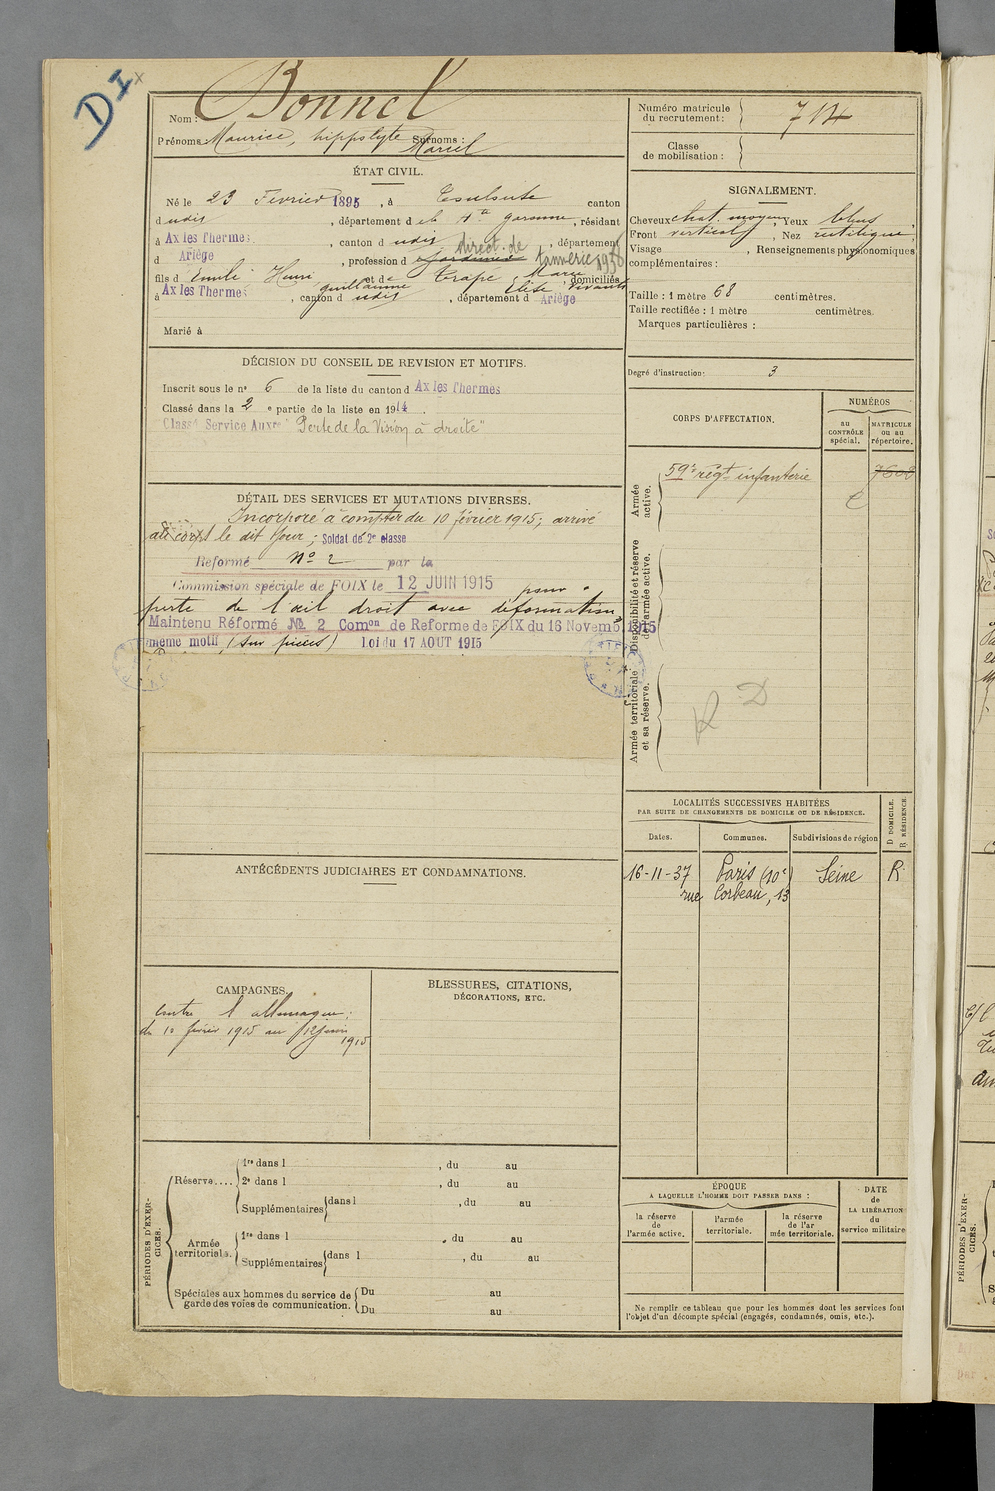 D I x
Nom : Bonnel
Prénoms : Maurice, hippolyte Surnoms :
Marcel
Numéro matricule
du recrutement :
714
Classe
de mobilisation :
ÉTAT CIVIL.
Né le 23 Fevrier 1895, à Toulouse canton
d udis, département d e la Hte garonne, résidant
à Ax les Thermes, canton d udis direct. de, département
d Ariège, profession d tannerie 1936
fils d Emile Henri guillaume et de Trapé Marie Elise domiciliés vivants
à Ax les Thermes, canton d udis, département d Ariège
Marié à
SIGNALEMENT.
Cheveux chat. moyen, Yeux bleus
Front vertical, Nez rectiligne;
Visage , Renseignements physionomiques
complémentaires :
Taille : 1 mètre 68 centimètres.
Taille rectifiée : 1 mètre centimètres.
Marques particulières :
Degré d'instruction : 3
DÉCISION DU CONSEIL DE REVISION ET MOTIFS.
Inscrit sous le no 6 de la liste du canton d Ax les Thermes
Classé dans la 2 e partie de la liste en 1914.
Classé Service Auxre "Perte de la Vision à droite"
DÉTAIL DES SERVICES ET MUTATIONS DIVERSES.
Incorporé à compter du 10 février 1915; arrivé
au corps le dit jour; Soldat de 2e classe
Reformé No 2 par la
Commission spéciale de FOIX le 12 JUIN 1915 pour
perte de l'œil droit avec déformation
Maintenu Réformé No 2 Comon de Reforme de FOIX du 16 Novemb. 1915
même motif (sur pièces) Loi du 17 AOUT 1915
CORPS D'AFFECTATION.
NUMÉROS
au
CONTRÔLE
spécial.
MATRICULE
ou au
répertoire.
Armée
active.
59e régt infanterie
7608
Disponibilité et réserve
de l'armée active.
Armée territoriale
et sa réserve.
R D
LOCALITÉS SUCCESSIVES HABITÉES
PAR SUITE DE CHANGEMENTS DE DOMICILE OU DE RÉSIDENCE.
D DOMICILE.
R RÉSIDENCE.
Dates.
Communes.
Subdivisions de région
16-11-37 Paris (10e) Seine R
rue Corbeau, 13
ANTÉCÉDENTS JUDICIAIRES ET CONDAMNATIONS.
CAMPAGNES.
contre l'allemagne:
du 10 février 1915 au 12 juin
1915
BLESSURES, CITATIONS,
DÉCORATIONS, ETC.
PÉRIODES D'EXER-
CICES.
Réserve....
1re dans l , du au
2e dans l , du au
Supplémentaires dans l , du au
Armée
territoriale.
1re dans l , du au
Supplémentaires dans l , du au
Spéciales aux hommes du service de
garde des voies de communication.
Du au
Du au
ÉPOQUE
À LAQUELLE L'HOMME DOIT PASSER DANS :
la réserve
de
l'armée active.
l'armée
territoriale.
la réserve
de l'ar
mée territoriale.
DATE
de
LA LIBÉRATION
du
service militaire
Ne remplir ce tableau que pour les hommes dont les services font
l'objet d'un décompte spécial (engagés, condamnés, omis, etc.).
PÉRIODES D'EXER-
CICES.